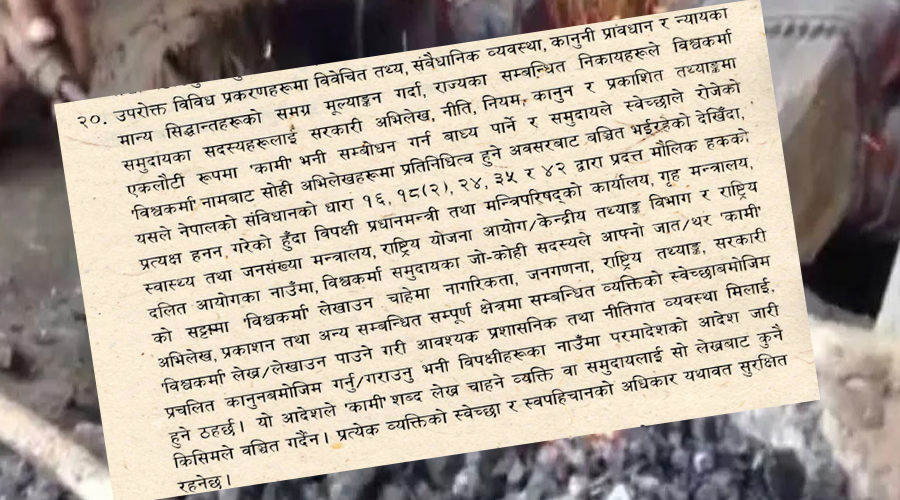 २०. उपरोक्त विविध प्रकरणहरूमा विवेचित तथ्य, संवैधानिक व्यवस्था, कानुनी प्रावधान र न्यायका
मान्य सिद्धान्तहरूको समग्र मूल्याङ्कन गर्दा, राज्यका सम्बन्धित निकायहरूले विश्वकर्मा
समुदायका सदस्यहरूलाई सरकारी अभिलेख, नीति, नियम, कानुन र प्रकाशित तथ्याङ्कमा
एकलौटी रूपमा 'कामी' भनी सम्बोधन गर्न बाध्य पार्ने र समुदायले स्वेच्छाले रोजेको
'विश्वकर्मा' नामबाट सोही अभिलेखहरूमा प्रतिनिधित्व हुने अवसरबाट वञ्चित भईरहेको देखिँदा,
यसले नेपालको संविधानको धारा १६, १८(२), २४, ३५ र ४२ द्वारा प्रदत्त मौलिक हकको
प्रत्यक्ष हनन गरेको हुँदा विपक्षी प्रधानमन्त्री तथा मन्त्रिपरिषद्को कार्यालय, गृह मन्त्रालय,
स्वास्थ्य तथा जनसंख्या मन्त्रालय, राष्ट्रिय योजना आयोग/केन्द्रीय तथ्याङ्क विभाग र राष्ट्रिय
दलित आयोगका नाउँमा, विश्वकर्मा समुदायका जो-कोही सदस्यले आफ्नो जात/थर 'कामी'
को सट्टामा 'विश्वकर्मा' लेखाउन चाहेमा नागरिकता, जनगणना, राष्ट्रिय तथ्याङ्क, सरकारी
अभिलेख, प्रकाशन तथा अन्य सम्बन्धित सम्पूर्ण क्षेत्रमा सम्बन्धित व्यक्तिको स्वेच्छाबमोजिम
'विश्वकर्मा' लेख्न/लेखाउन पाउने गरी आवश्यक प्रशासनिक तथा नीतिगत व्यवस्था मिलाई,
प्रचलित कानुनबमोजिम गर्नु/गराउनु भनी विपक्षीहरूका नाउँमा परमादेशको आदेश जारी
हुने ठहर्छ। यो आदेशले 'कामी' शब्द लेख्न चाहने व्यक्ति वा समुदायलाई सो लेख्नबाट कुनै
किसिमले वञ्चित गर्दैन। प्रत्येक व्यक्तिको स्वेच्छा र स्वपहिचानको अधिकार यथावत सुरक्षित
रहनेछ।